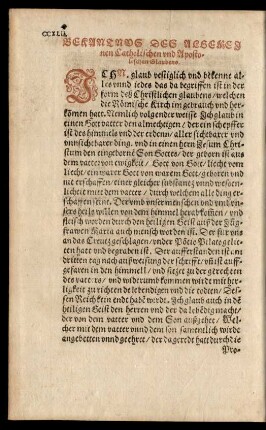 CCXLII.
BEKANTNVS DES ALGEMEI
nen Catholischen vnd Aposto-
lischen Glaubens.
ICH N. glaub vestiglich vnd bekenne al-
les vnnd jedes das da begriffen ist in der
form des Christlichen glaubens / welchen
die Römische Kirch im gebrauch vnd her-
kömen hatt. Nemlich volgender weisse Jch glaub in
einen Gott vatter den almechtigen / der ein schepffer
ist des himmels vnd der erden / aller sichtbarer vnd
vnsichtbarer ding. vnd in einen hern Jesum Chri-
stum den eingeborne Son Gottes / der geborn ist aus
dem vatter von ewigkeit / Gott von Got / liecht vom
liecht / ein warer Gott von warem Gott / geboren vnd
nit erschaffen / einer gleicher substantz vnnd wesen-
licheit mit dem vatter / durch welchem alle ding er-
schaffen seint. Der vmb vnser menschen vnd vmb vn-
sers heylz willen von dem himmel herab kossen / vnd
fleisch worden durch den heilligen Geist auss der Jüg-
frawen Maria auch mensch worden ist. Der für vns
an das Creutz geschlagen / vnder Pötio Pilato gelit-
ten hatt vnd begraben ist. Der aufferstanden ist am
dritten tag nach ausweisung der schrifft / vnd ist auff-
gefaren in den himmell / vnd sitzet zu der gerechten
des vaters / vnd widerumb kommen wirdt mit her-
ligkeit zu richten de lebendigen vnd die todten / Des-
sen Reich kein endt habē wordt. Jch glaub auch in dē
heiligen Geist den herren vnd der da lebēdig macht /
der von dem vatter vnd dem Son außgehet / Wel-
cher mit dem vatter vnnd dem son samentlich wirde
angebetten vnnd geehret / der da geredt hatt durch die
Pro-